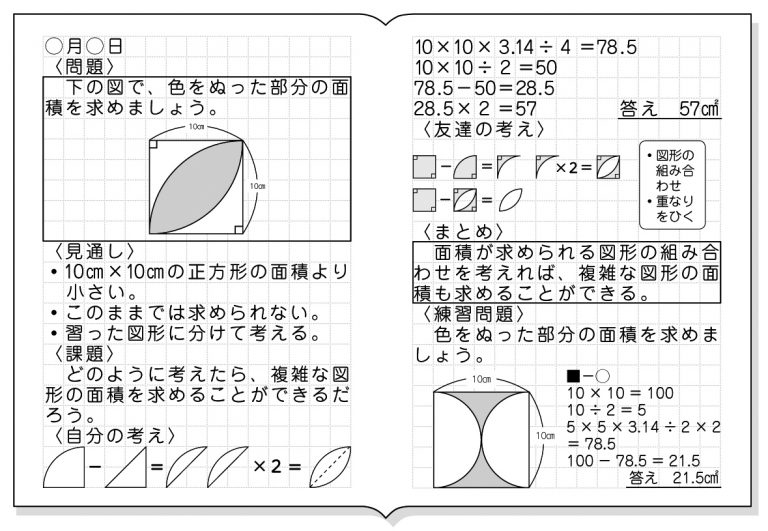 ○月○日
〈問題〉
下の図で、色をぬった部分の面
積を求めましょう。
10㎝
10㎝
〈見通し〉
・10㎝×10㎝の正方形の面積より
小さい。
・このままでは求められない。
・習った図形に分けて考える。
〈課題〉
どのように考えたら、複雑な図
形の面積を求めることができるだ
ろう。
〈自分の考え〉
－ ＝ ×2＝
10×10×3.14÷4＝78.5
10×10÷2＝50
78.5－50＝28.5
28.5×2＝57 答え 57㎠
〈友達の考え〉
－ ＝ ×2＝
－ ＝
・図形の
組み合
わせ
・重なり
をひく
〈まとめ〉
面積が求められる図形の組み合
わせを考えれば、複雑な図形の面
積も求めることができる。
〈練習問題〉
色をぬった部分の面積を求めま
しょう。
10㎝
10㎝
■－○
10×10＝100
10÷2＝5
5×5×3.14÷2×2
＝78.5
100－78.5＝21.5
答え 21.5㎠